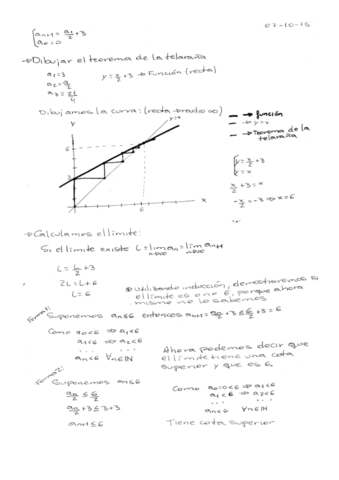 {a_{n+1} = a_n/2 + 3
{a_0 = 0
07-10-15
→ Dibujar el teorema de la telaraña
a_1 = 3
a_2 = 9/2
a_3 = 21/4
y = x/2 + 3 → Función (recta)
Dibujamos la curva: (recta → radio ∞)
y
y=x
6
3
6
x
→ función
→ y=x
→ Teorema de la telaraña
{y = x/2 + 3
{y = x
x/2 + 3 = x
-x/2 = -3 ⇒ x = 6
→ Calculamos el límite:
Si el límite existe L = lim a_n = lim a_{n+1}
n→∞ n→∞
L = L/2 + 3
2L = L + 6
L = 6
* Utilizando inducción, demostraremos si
el límite es o no 6, porque ahora
mismo no lo sabemos
Forma 1:
Suponemos a_n ≤ 6 entonces a_{n+1} = a_n/2 + 3 ≤ 6/2 + 3 = 6
Como a_0 < 6 ⇒ a_1 < 6
a_1 < 6 ⇒ a_2 < 6
... ...
a_n < 6 ∀n∈ℕ
Ahora podemos decir que
el límite tiene una cota
superior y que es 6.
Forma 2:
Suponemos a_n ≤ 6
a_n/2 ≤ 6/2
a_n/2 + 3 ≤ 3 + 3
a_{n+1} ≤ 6
Como a_0 = 0 < 6 ⇒ a_1 < 6
a_1 < 6 ⇒ a_2 < 6
... ...
a_n < 6 ∀n∈ℕ
Tiene cota superior